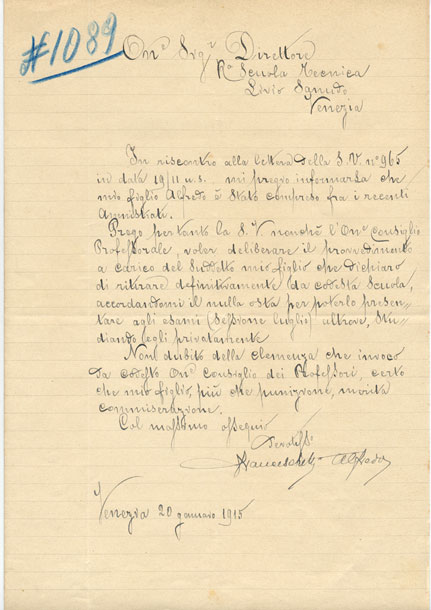 #1089
On.e Sig.r Direttore
R.a Scuola Tecnica
Livio Sanudo
Venezia
In riscontro alla lettera della S.V. n.o 965
in data 19/11 u.s. mi pregio informarla che
mio figlio Alfredo è stato compreso fra i recenti
Amnistiati.
Prego pertanto la S.V. nonchè l'On.e Consiglio
Professorale, voler deliberare il provvedimento
a carico del suddetto mio figlio che dichiaro
di ritirare definitivamente da codesta Scuola,
accordandomi il nulla osta per poterlo presen-
tare agli esami (sessione luglio) altrove, stu-
diando egli privatamente
Non dubito della clemenza che invoco
da codesto On.e Consiglio dei Professori, certo
che mio figlio, più che punizione, merita
commiserazione.
Col massimo ossequio
Devotiss.o
Alfredo
Venezia 20 gennaio 1915